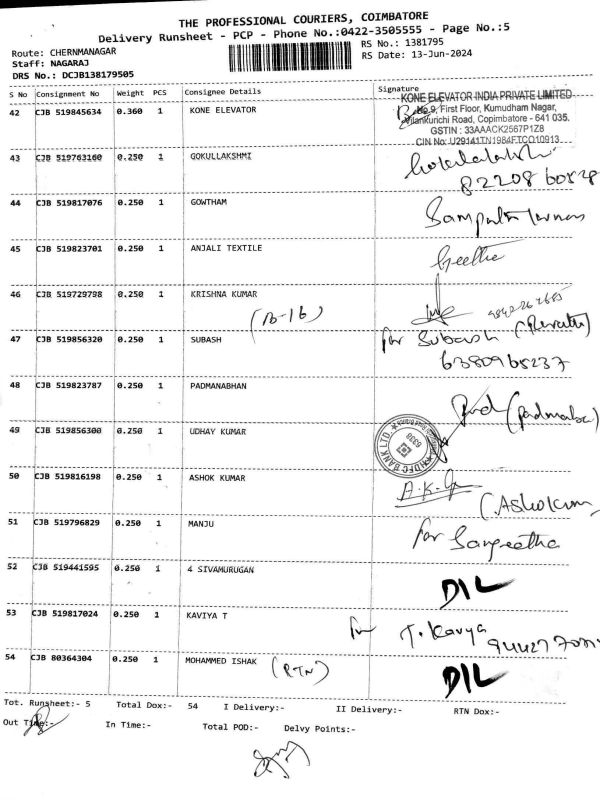 THE PROFESSIONAL COURIERS, COIMBATORE
Delivery Runsheet - PCP - Phone No.:0422-3505555 - Page No.:5
Route: CHERNMANAGAR
RS No.: 1381795
Staff: NAGARAJ
RS Date: 13-Jun-2024
DRS No.: DCJB138179505
S No Consignment No Weight PCS Consignee Details Signature
KONE ELEVATOR INDIA PRIVATE LIMITED
42 CJB 519845634 0.360 1 KONE ELEVATOR No.9, First Floor, Kumudham Nagar,
Vilankurichi Road, Copimbatore - 641 035.
GSTIN : 33AAACK2567P1Z8
CIN No: U29141TN1984FTC010913
43 CJB 519763160 0.250 1 GOKULLAKSHMI
82208 60528
44 CJB 519817076 0.250 1 GOWTHAM
45 CJB 519823701 0.250 1 ANJALI TEXTILE Geetha
46 CJB 519729798 0.250 1 KRISHNA KUMAR
(B-16)
47 CJB 519856320 0.250 1 SUBASH for Subash (Revathi)
6380965237
48 CJB 519823787 0.250 1 PADMANABHAN
49 CJB 519856300 0.250 1 UDHAY KUMAR
HDFC BANK LTD.
50 CJB 519816198 0.250 1 ASHOK KUMAR A.K.
51 CJB 519796829 0.250 1 MANJU for Sangeetha
52 CJB 519441595 0.250 1 4 SIVAMURUGAN DIL
53 CJB 519817024 0.250 1 KAVIYA T for T. Kavya
54 CJB 80364304 0.250 1 MOHAMMED ISHAK (RTN) DIL
Tot. Runsheet:- 5 Total Dox:- 54 I Delivery:- II Delivery:- RTN Dox:-
Out Time:- In Time:- Total POD:- Delvy Points:-